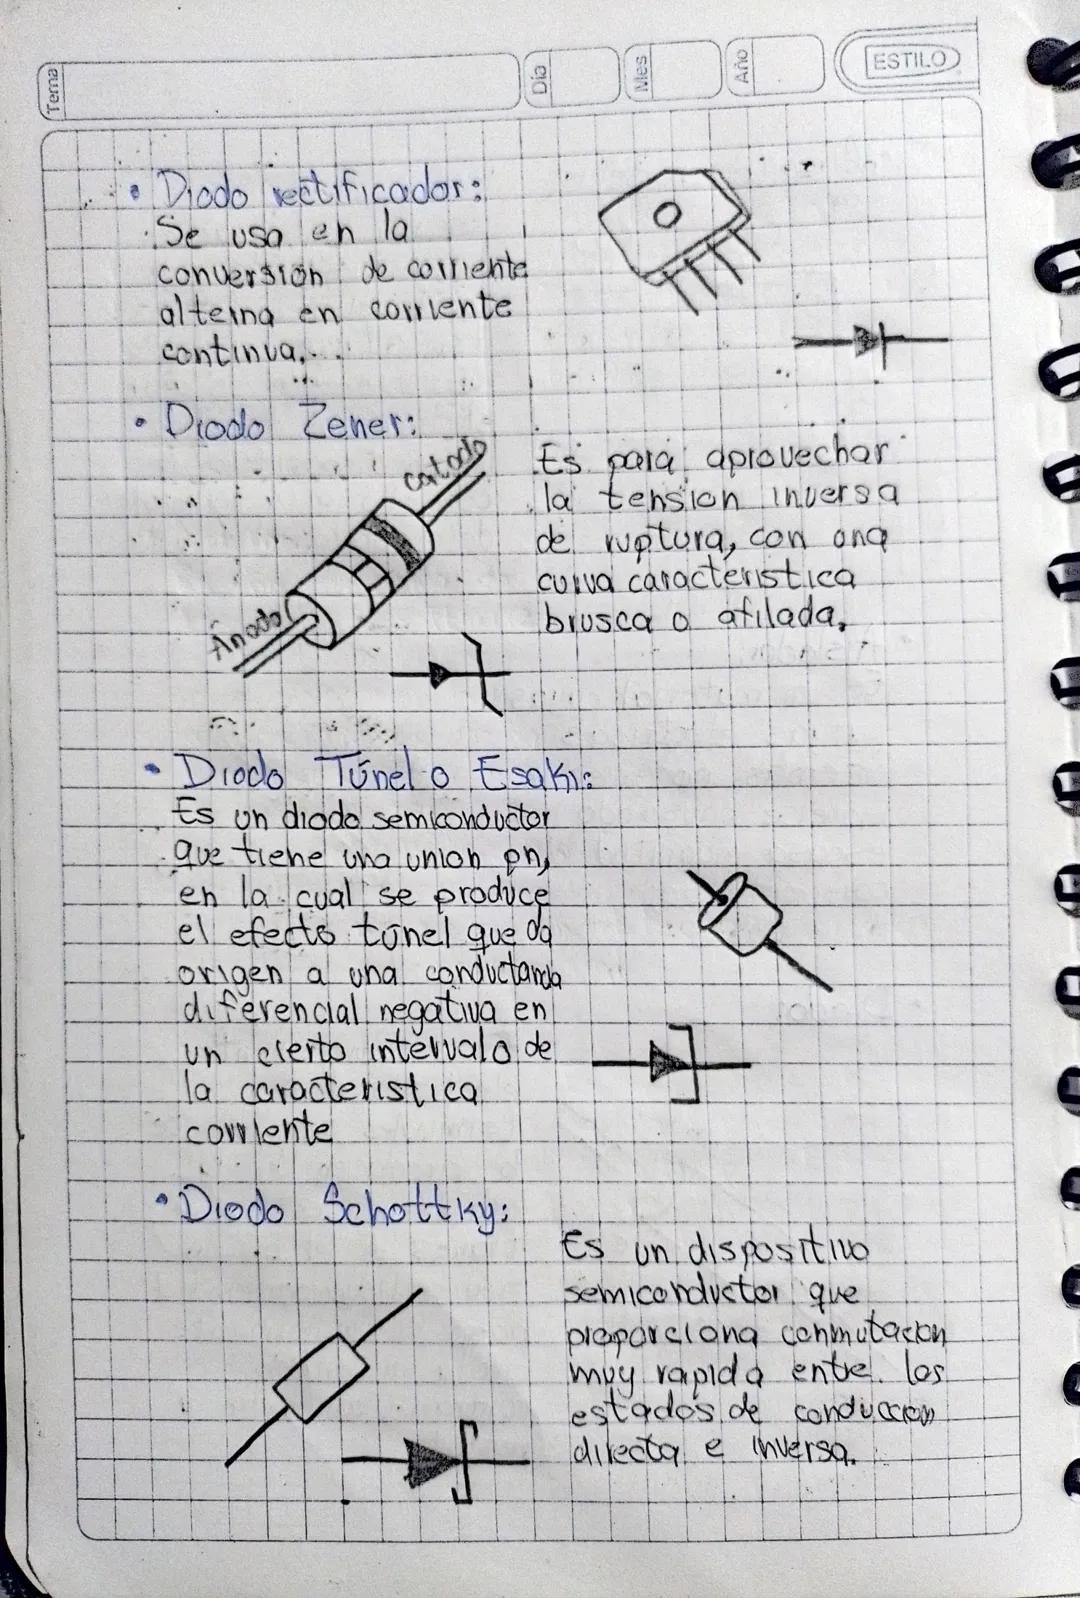 Tema
Día
Mes
Año
ESTILO
• Diodo rectificador:
Se usa en la
conversión de corriente
alterna en corriente
continua.
• Diodo Zener:
catodo
Anodo
Es para aprovechar
la tension inversa
de ruptura, con una
curva caracteristica
brusca o afilada.
• Diodo Túnel o Esaki:
Es un diodo semiconductor
que tiene una union pn,
en la cual se produce
el efecto túnel que da
origen a una conductancia
diferencial negativa en
un cierto intervalo de
la caracteristica
corriente
• Diodo Schottky:
Es un dispositivo
semiconductor que
proporciona conmutacion
muy rapida entre los
estados de conduccion
directa e inversa.